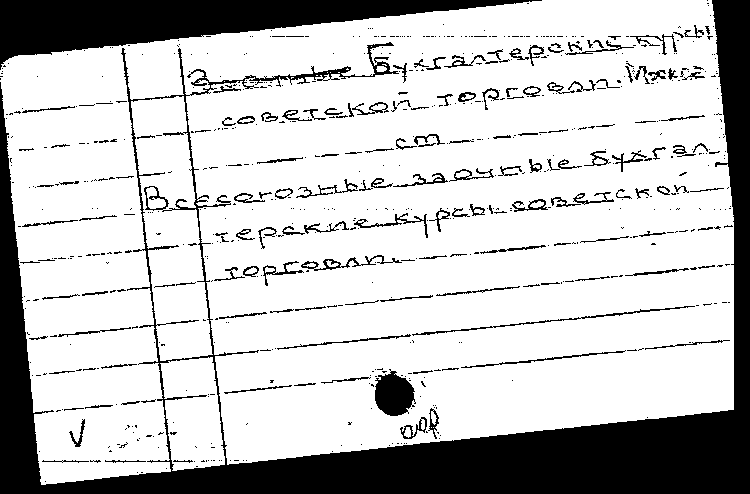 Заочные Бухгалтерские курсы
советской торговли.
см
Всесоюзные заочные бухгал
терские курсы советской
торговли.
V